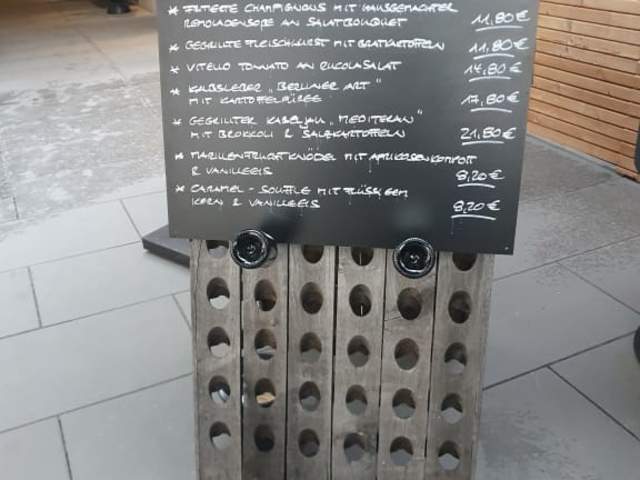 * FRITIERTE CHAMPIGNONS MIT HAUSGEMACHTER
REMOLADENSOßE AN SALATBOUQUET 11,80 €
* GEGRILLTE FLEISCHWURST MIT BRATKARTOFFELN 11,80 €
* VITELLO TONNATO AN RUCOLASALAT 14,80 €
* KALBSLEBER „BERLINER ART"
MIT KARTOFFELPÜREE 17,80 €
* GEGRILLTER KABELJAU „MEDITERAN"
MIT BROKKOLI & SALZKARTOFFELN 21,80 €
* MARILLENFRUCHTKNÖDEL MIT APRIKOSENKOMPOTT
& VANILLEEIS 8,20 €
* CARAMEL - SOUFFLE MIT FLÜSSIGEM
KERN & VANILLEEIS 8,20 €